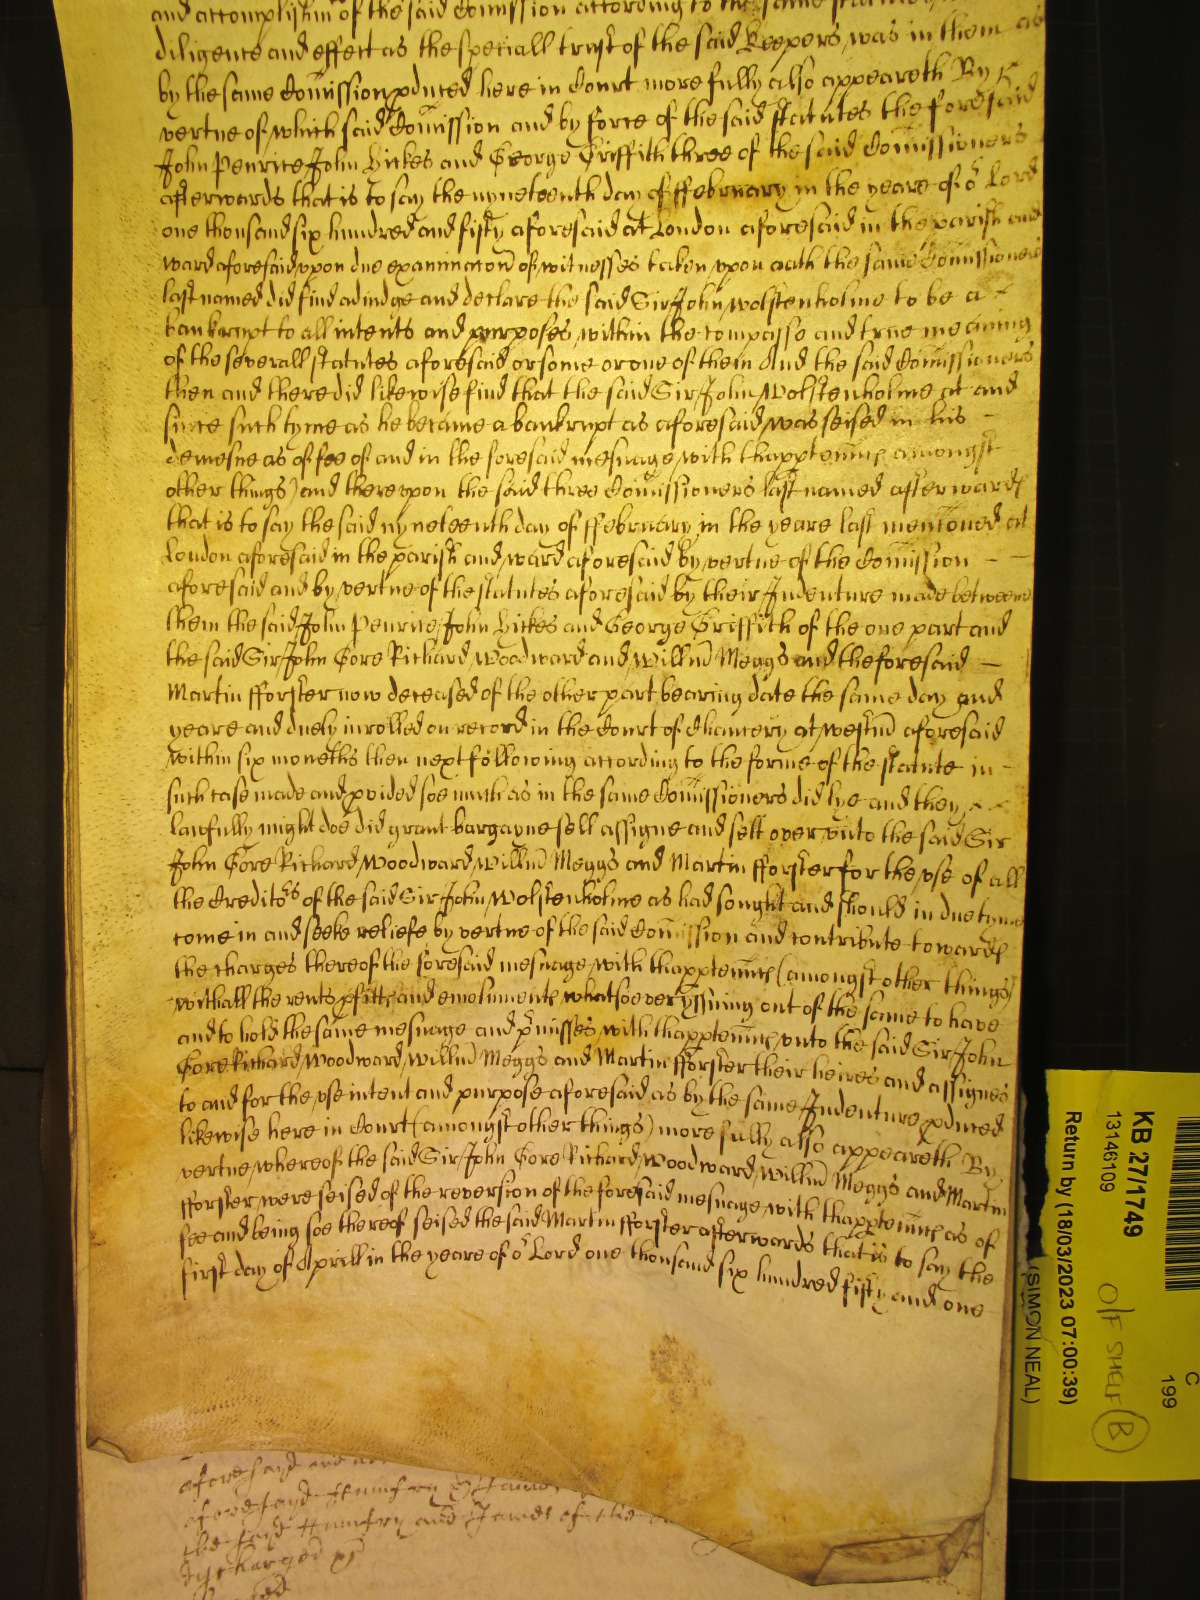 and accomplishm̄t of the said Com̄ission according to the same
diligence and effect as the speciall trust of the said Keepers was in them as
by the same Com̄ission pduced here in Court more fully also appeareth By
vertue of which said Com̄ission and by force of the said statutes the foresaid
John Penrice John Hickes and George Griffith three of the said Com̄issioners
afterwards that is to say the nyneteenth day of ffebruary in the yeare of or Lord
one thousand six hundred and fifty aforesaid at London aforesaid in the parish and
ward aforesaid upon due examinacon̄ of witnesses taken upon oath the same Com̄issioners
last named did find adiudge and declare the said Sir John Wolstenholme to be a
bankrupt to all intents and purposes within the compasse and true meaning
of the severall statutes aforesaid or some or one of them And the said Com̄issioners
then and there did likewise find that the said Sir John Wolstenholme at and
since such tyme as he became a bankrupt as aforesaid was seised in his
demesne as of fee of and in the foresaid mesuage with thapptenn̄cs amongst
other things) and thereupon the said three Com̄issioners last named afterwards
that is to say the said nyneteenth day of ffebruary in the yeare last mentioned at
London aforesaid in the parish and ward aforesaid by vertue of the Com̄ission
aforesaid and by vertue of the statutes aforesaid by their Indenture made betweene
them the said John Penrice John Hickes and George Griffith of the one part and
the said Sir John Gore Richard Woodward and Willm̄ Meggs and the foresaid
Martin fforster now deceased of the other part bearing date the same day and
yeare and duely inrolled on record in the Court of Chancery at Westm̄ aforesaid
within six moneths then next following according to the forme of the statute in
such case made and pvided soe much as in the same Com̄issioners did lye and they
lawfully might doe did grant bargayne sell assigne and sett over unto the said Sir
John Gore Richard Woodward Willm̄ Meggs and Martin fforster for the use of all
the Creditors of the said Sir John Wolstenholme as had sought and should in due tyme
come in and seeke reliefe by vertue of the said Com̄ission and contribute towards
the charges thereof the foresaid mesuage with thapptenn̄cs (amongst other things)
withall the rents pfitts and emoluments whatsoever yssuing out of the same to have
and to hold the same mesuage and pr̄misses with thapptenn̄cs unto the said Sir John
Gore Richard Woodward Willm̄ Meggs and Martin fforster their heires and assignes
to and for the use intent and purpose aforesaid as by the same Indenture pduced
likewise here in Court (amongst other things) more fully also appeareth By
vertue whereof the said Sir John Gore Richard Woodward Willm̄ Meggs and Martin
fforster were seised of the reversion of the foresaid mesuage with thapptenn̄cs as of
fee and being soe thereof seised the said Martin fforster afterwards that is to say the
first day of Aprill in the yeare of or Lord one thousand six hundred fifty and one
aforesayd and
aforesayd Humfrey
the sayd Humfrey and James of the
discharged
KB 27/1749
13146109
Return by (18/03/2023 07:00:39)
(SIMON NEAL)
C
199
O/F SHELF
B